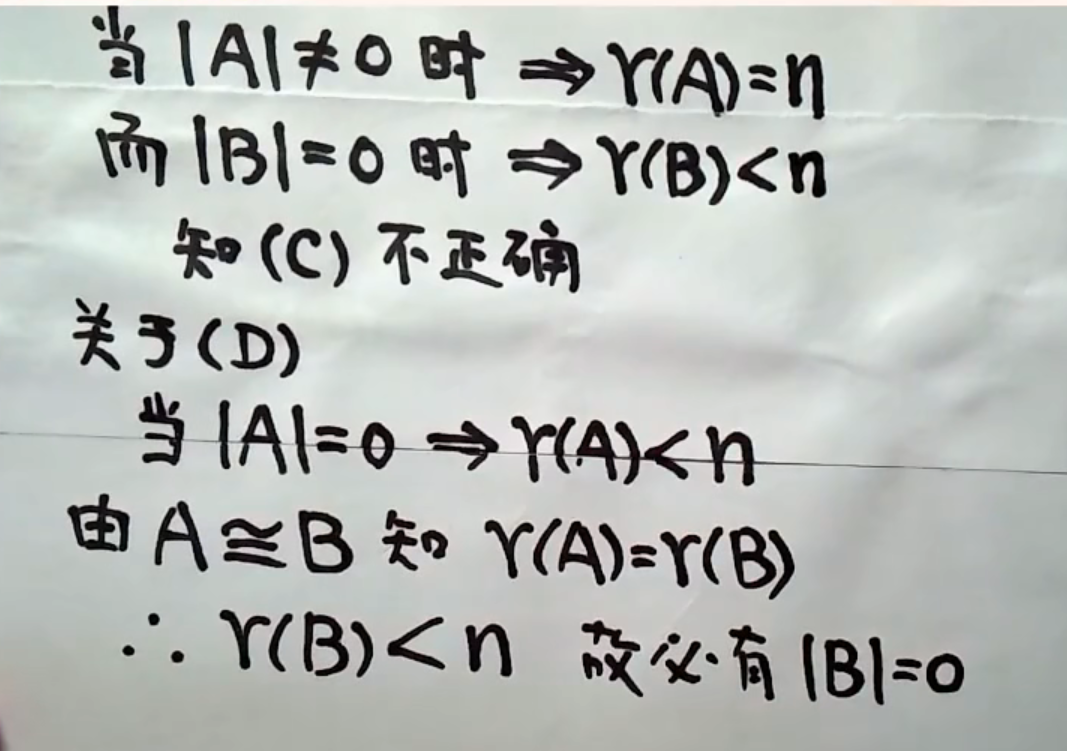 当 |A|≠0 时 ⇒ r(A)=n
而 |B|=0 时 ⇒ r(B)<n
知(C) 不正确
关于(D)
当 |A|=0 ⇒ r(A)<n
由 A≅B 知 r(A)=r(B)
∴ r(B)<n 故必有 |B|=0